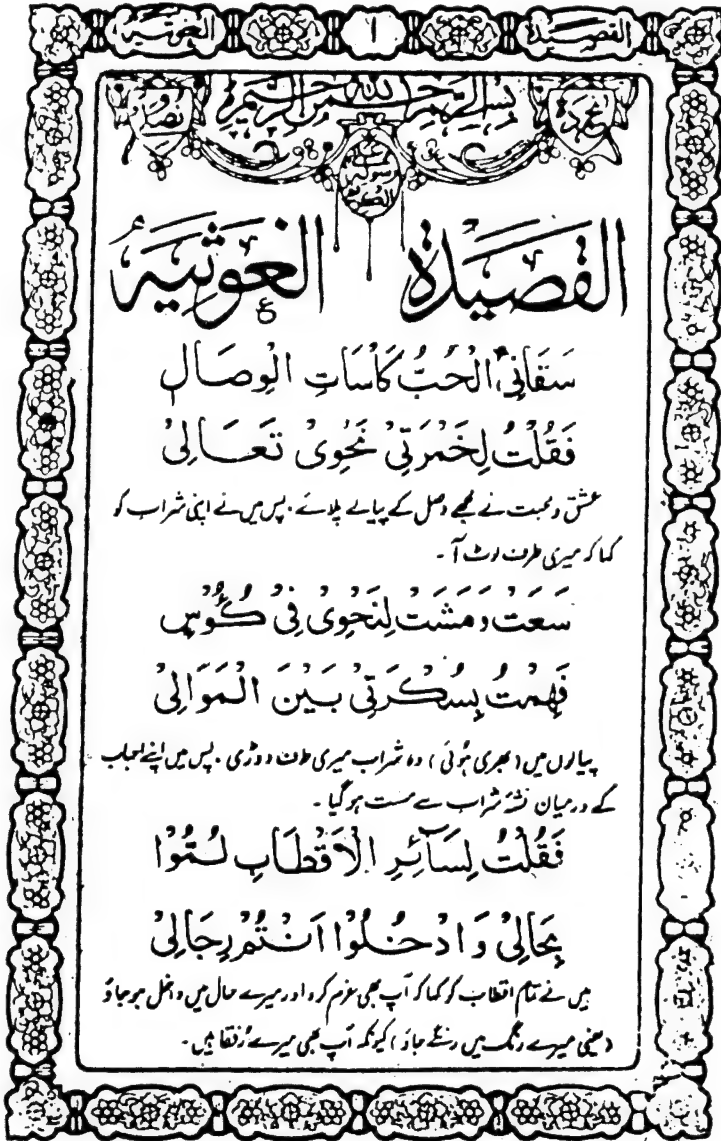 القصیدة ١ الغوثیة
بسم الله الرحمن الرحیم
نحمده ونصلی علی رسوله الکریم
القَصِیْدَةُ الغَوْثِیَةُ
سَقَانِی الْحُبُّ کَاْسَاتِ الْوِصَالِ
فَقُلْتُ لِخَمْرَتِیْ نَحْوِیْ تَعَالِیْ
عشق و محبت نے مجھے وصل کے پیالے پلائے، پس میں نے اپنی شراب کو
کہا کہ میری طرف لوٹ آ۔
سَعَتْ وَمَشَتْ لِنَحْوِیْ فِیْ کُؤُوْسٍ
فَهِمْتُ بِسُکْرَتِیْ بَیْنَ الْمَوَالِیْ
پیالوں میں (بھری ہوئی) وہ شراب میری طرف دوڑی، پس میں اپنے احباب
کے درمیان نشۂ شراب سے مست ہو گیا۔
فَقُلْتُ لِسَآئِرِ الْاَقْطَابِ لُمُّوْا
بِحَالِیْ وَادْخُلُوْا اَنْتُمْ رِجَالِیْ
میں نے تمام اقطاب کو کہا کہ آپ بھی عزم کرو اور میرے حال میں داخل ہو جاؤ
(یعنی میرے رنگ میں رنگے جاؤ) کیونکہ آپ بھی میرے رفقا ہیں۔